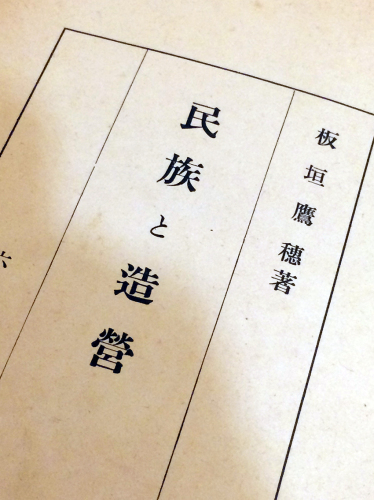 板垣鷹穗著
民族と造營
六